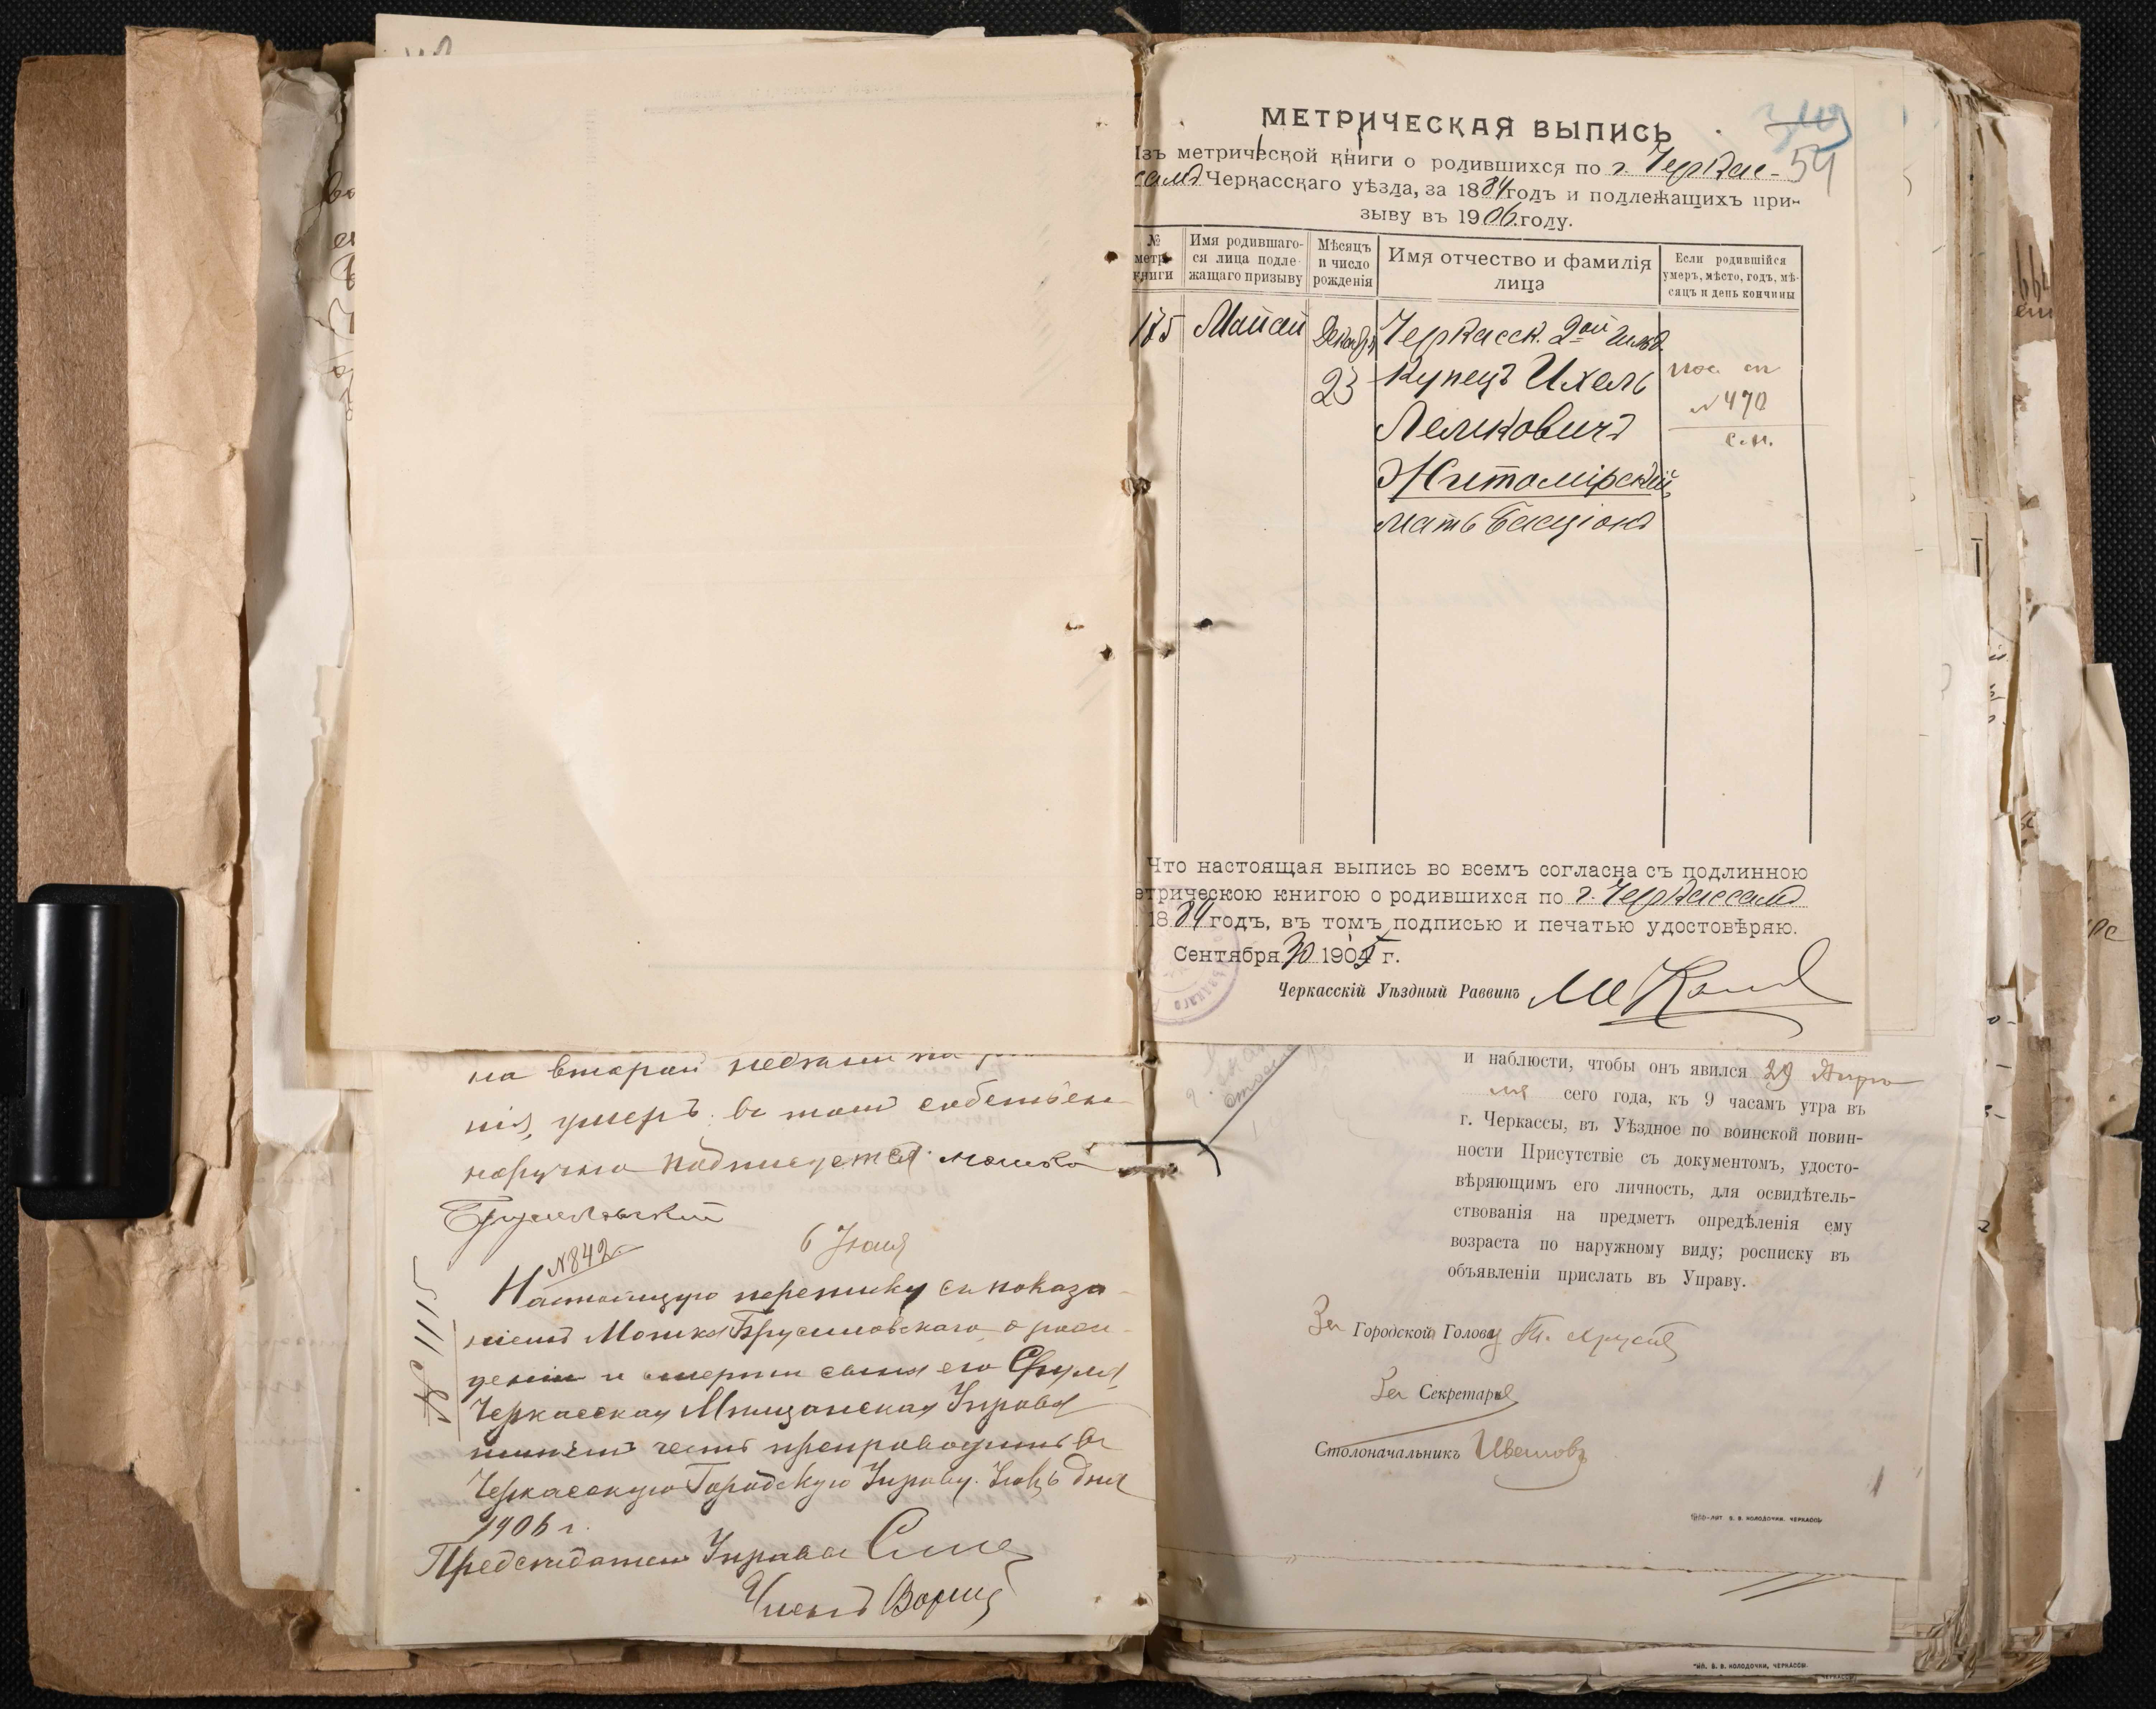 на второй недели
нія, умеръ. въ томъ собствен
норучно подписуется Мошко
Брусиловскій
6 Іюня
№842
№ 1115
Настоящую переписку съ показа
ніемъ Мошка Брусиловскаго о рож
деніи и смерти сына его Сруля,
Черкасская Мѣщанская Управа
имѣетъ честь препроводить въ
Черкасскую Городскую Управу. Іюнь 6 дня
1906 г.
Предсѣдатель Управы
Членъ
МЕТРИЧЕСКАЯ ВЫПИСЬ
54
Изъ метрической книги о родившихся по г. Черкас-
самъ Черкасскаго уѣзда, за 1884 годъ и подлежащихъ при-
зыву въ 1906 году.
№ метр. книги
Имя родившаго-ся лица подле-жащаго призыву
Мѣсяцъ и число рожденія
Имя отчество и фамилія лица
Если родившійся умеръ, мѣсто, годъ, мѣ-сяцъ и день кончины
175 Декабря Черкасск. 2ой гильд.
23 купецъ Ихель
Лейковичъ
Житомірскій,
мать
№ 470
с.м.
Что настоящая выпись во всемъ согласна съ подлинною
етрическою книгою о родившихся по г. Черкассамъ
1884 годъ, въ томъ подписью и печатью удостовѣряю.
Сентября 30 1905 г.
Черкасскій Уѣздный Раввинъ
и наблюсти, чтобы онъ явился 29 Апрѣ
ля сего года, къ 9 часамъ утра въ
г. Черкассы, въ Уѣздное по воинской повин-
ности Присутствіе съ документомъ, удосто-
вѣряющимъ его личность, для освидѣтель-
ствованія на предметъ опредѣленія ему
возраста по наружному виду; росписку въ
объявленіи прислать въ Управу.
За Городской Голову
За Секретаря
Столоначальникъ Ивановъ
ТИПО-ЛИТ. В. В. КОЛОДОЧКИ. ЧЕРКАССЫ
ТИП. В. В. КОЛОДОЧКИ, ЧЕРКАССЫ.